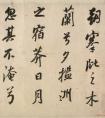 朝搴阰之木
蘭兮夕檻洲
之宿莽日月
忽其不淹兮